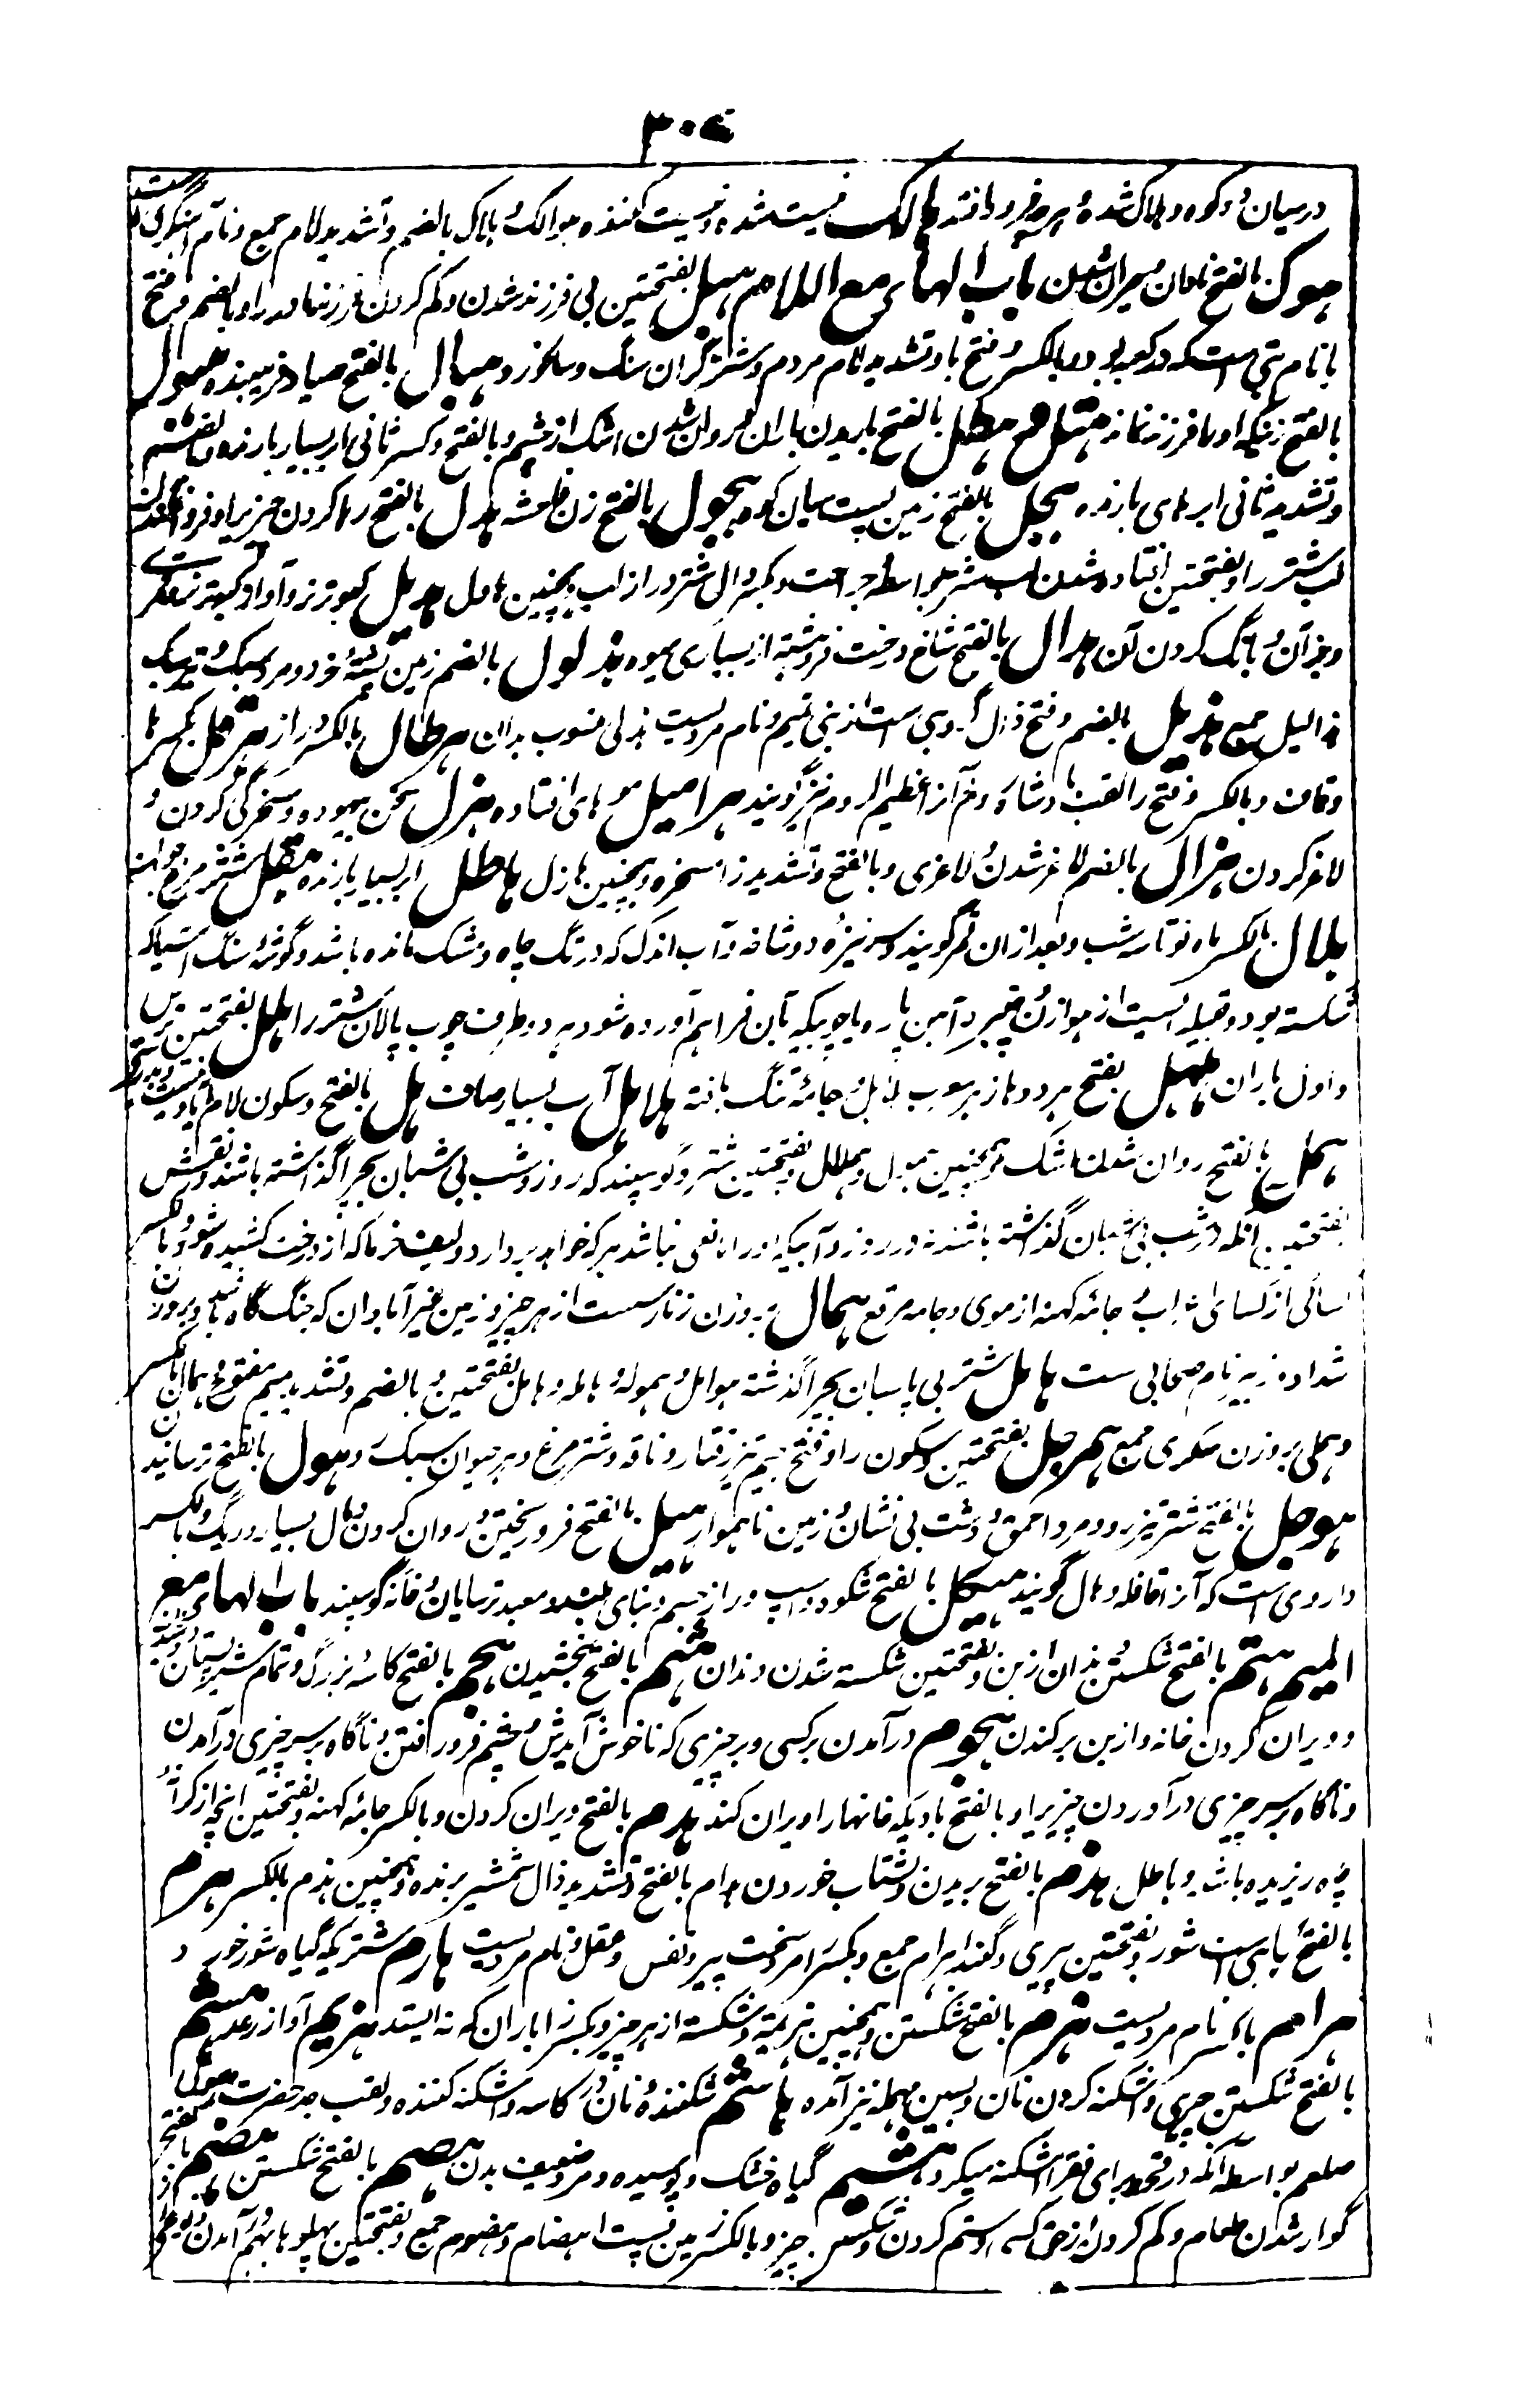 ۳۰۷
درمیان دو کوه و هلاک شده هرچه فرود افتد هالک نیست شده و نیست کننده هوالک و هلاک بالضم و تشدید لام جمع و نام آهنگری است
هوک بالفتح نادان حیران شدن باب الهای مع اللام هبل بفتحتین بی فرزند شدن و گم کردن فرزند مادر را و بالضم و فتح
با نام بتی است که در کعبه بود و بالکسر و فتح با و تشدید لام مردم و شتر گران سنگ و سالخورد هبال بالفتح صیاد فریبنده هبول
بالفتح زنیکه او را فرزند نماند هتل هطل بالفتح باریدن باران و روان شدن اشک از چشم و بالفتح و کسر ثانی ابر بسیار بارنده
و تشدید ثانی ابرهای بارنده هجل بالفتح زمین پست میان کوه هجول بالفتح زن فاحشه هدل بالفتح رها کردن چیزی را و فرو
لب شتر را و بفتحتین افتاده شدن لب شتر بواسطه جراحت و بکسر دال شتر دراز لب و همچنین هادل هدیل کبوتر نر و آواز کبوتر
و جز آن و بانگ کردن آن هدال بالفتح شاخ درخت فروهشته از بسیاری میوه هذلول بالضم زمین پشته خرد و مرد سبک و تیر سبک
هذالیل جمع هذیل بالضم و فتح ذال گروهی است از بنی تمیم و نام مردیست هذلی منسوب بدان هرطال بالکسر دراز هرقل بکسر ها
و قاف و بالکسر و فتح را لقب پادشاه روم و آنرا عظیم الروم نیز گویند هرامیل موهای افتاده هزل سخن بیهوده و سخرگی کردن و
لاغر کردن هزال بالضم لاغر شدن و لاغری و بالفتح و تشدید زا مسخره و همچنین هازل هاطل ابر بسیار بارنده هقل شتر مرغ جوان
هلال بالکسر ماه نو تا سه شب و بعد از آن قمر گویند و سر نیزه دو شاخه و آب اندک که در تگ چاه و مشک مانده باشد و گوشه سنگ آسیا که
شکسته بود و قبیله ایست از هوازن و چنبر آهن پاره یا چوبیکه بآن فراهم آورده شود هر دو طرف چوب پالان شتر را هلل بفتحتین ترس
و اول باران هلهل بفتح هر دو ها زهر و جامه تنگ بافته هلاهل آب بسیار صاف هل بالفتح و سکون لام آیا
همل بالفتح روان شدن اشک و همچنین همول و هملان و بفتحتین شتر و گوسپند که روز و شب بی شبان بچرا گذاشته باشند و نفش
بفتحتین آنکه در شب بی شبان گذاشته باشند نه در روز و آبیکه او را مانعی نباشد هر که خواهد بردارد و لیف خرما که از درخت کشیده شود و بالکسر
از کسای اعراب و جامه کهنه از موی و جامه مرقع همال بر وزن زنار سست از هر چیز و زمین غیر آبادان که جنگ گاه باشد و بر وزن
شداد نام صحابی ست هامل شتر بی پاسبان بچرا گذاشته هوامل و همول و هاملة و همل بفتحتین و بالضم و تشدید میم مفتوح و همال بالکسر
و هملی بر وزن سکری جمع همرجل بفتحتین و سکون را و فتح جیم تیز رفتار و ناقه و شتر مرغ و هر حیوان سبک رو هول بالفتح ترسانیدن
هوجل بالفتح شتر تیز رو و مرد احمق و دشت بی نشان و زمین ناهموار هیل بالفتح فرو ریختن و روان کردن و مال بسیار و ریگ و بالکسر
داروی است که آنرا قاقله و هال گویند هیکل بالفتح شکوه و اسپ دراز جسیم و بنای بلند و معبد ترسایان و خانه گویند باب الهای مع
المیم هتم بالفتح شکستن دندان از بن و بفتحتین شکسته شدن دندان هثم بالفتح بخشیدن هجم بالفتح کاسه بزرگ و تمام شیر پستان
و ویران کردن خانه و از بن برکندن هجوم درآمدن بر کسی و بر چیزی که ناخوش آیدش و چشم فرو رفتن و ناگاه بر سر چیزی درآمدن
و ناگاه بر سر چیزی درآوردن چیزی را و بالفتح بادیکه خانها را ویران کند هدم بالفتح ویران کردن و بالکسر جامه کهنه و بفتحتین آنچه از کرانه
چاه ریزیده باشد و باطل هذم بالفتح بریدن و بشتاب خوردن هذام بالفتح و تشدید ذال شمشیر برنده و همچنین هذم بالکسر هرم
بالفتح گیاهی است شور و بفتحتین پیری و کند اهرام جمع و بکسر را مرد سخت پیر و نفس و عقل و نام مردیست هارم شتریکه گیاه شور خورد
هرامر نام مردیست هزم بالفتح شکستن و همچنین هزیمة و شکسته از هر چیز و بکسر زا باران که نه ایستد هزیم آواز رعد هشم
بالفتح شکستن چیزی و اشکنه کردن نان و بسین مهمله نیز آمده هاشم شکننده نان در کاسه و اشکنه کننده و لقب جد حضرت رسول
صلعم بواسطه آنکه در قحط برای فقرا اشکنه میکرد هشیم گیاه خشک و پوسیده و مرد ضعیف بدن هصم بالفتح شکستن هضم بالفتح
گوارشدن طعام و کم کردن از حق کسی و ستم کردن و شکستن چیز و بالکسر زمین پست اهضام و هضوم جمع و بفتحتین پهلوها بهم درآمدن